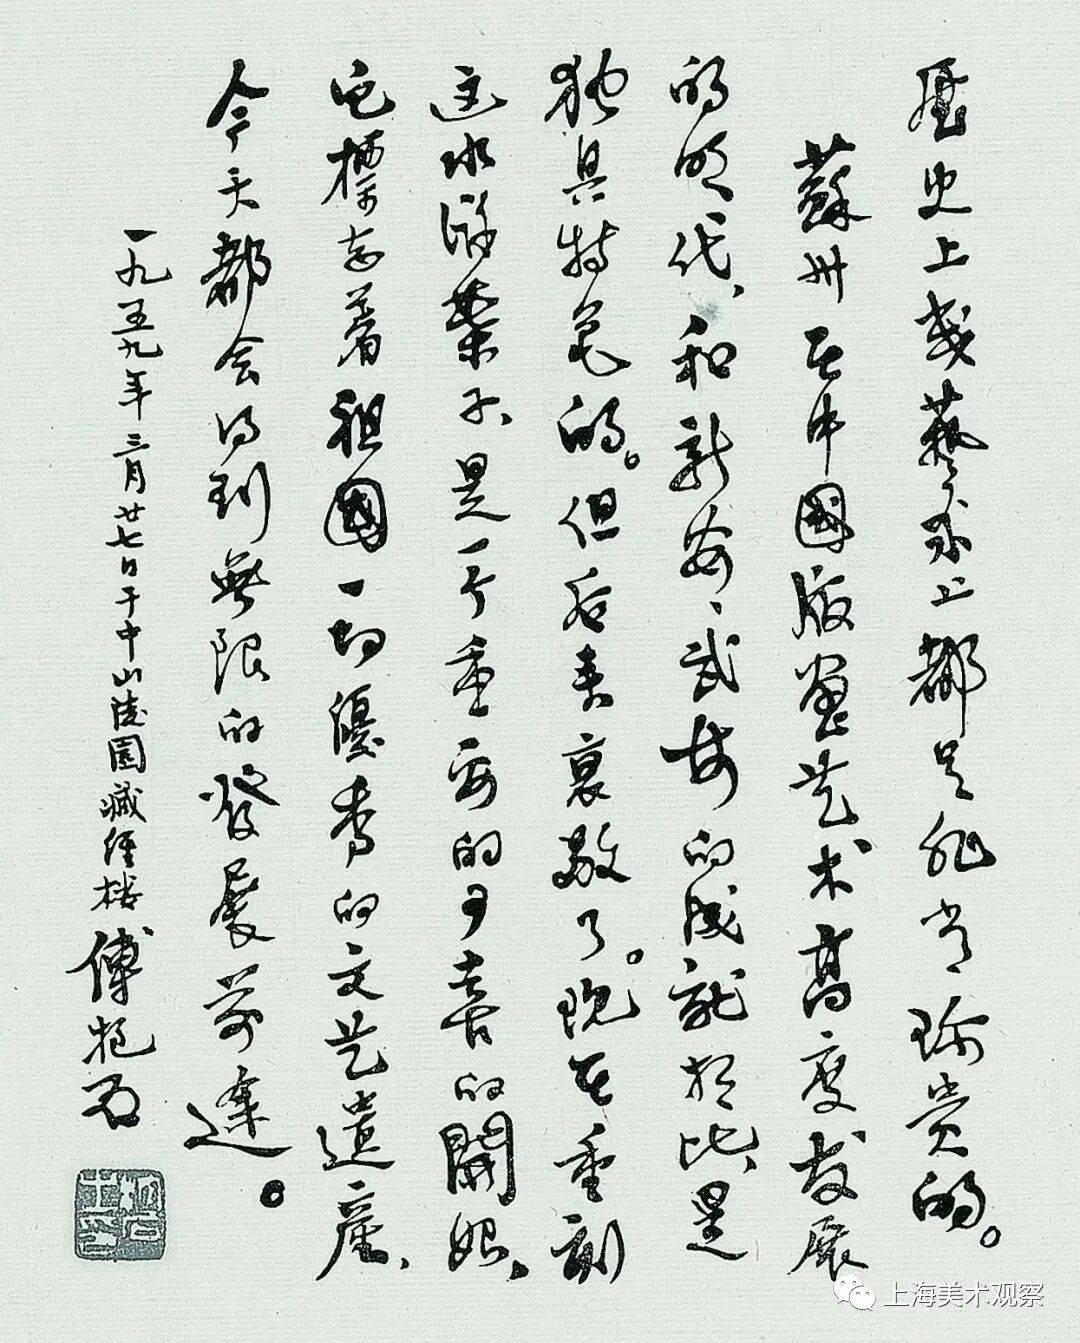 歷史上或藝术上都是非常珍贵的。
蘇州在中國版畫艺术高度发展
的明代、和新安、武林的成就相比、是
独具特色的。但后来衰敝了。现在重刻
这水浒葉子、是一个重要的可喜的開始、
它標志着祖國一切優秀的文艺遺產、
今天都会得到無限的發展前途。
一九五九年三月廿七日于中山陵園藏經楼 傅抱石
上海美术观察